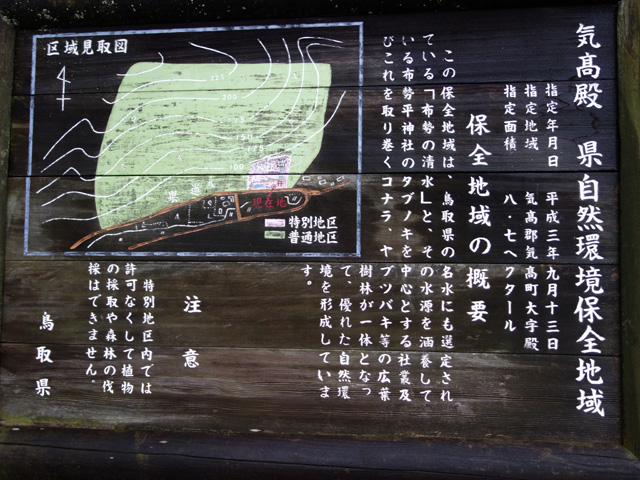 気高殿 県自然環境保全地域
指定年月日 平成三年九月十三日
指定地域 気高郡気高町大字殿
指定面積 八・七ヘクタール
保全地域の概要
この保全地域は、鳥取県の名水にも選定され
ている「布勢の清水」と、その水源を涵養して
いる布勢平神社のタブノキを中心とする社叢及
びこれを取り巻くコナラ、ヤブツバキ等の広葉
樹林が一体となっ
て、優れた自然環
境を形成していま
す。
注意
特別地区内では
許可なくして植物
の採取や森林の伐
採はできません。
鳥取県
区域見取図
225
200
175
150
125
100
県道
現在地
特別地区
普通地区